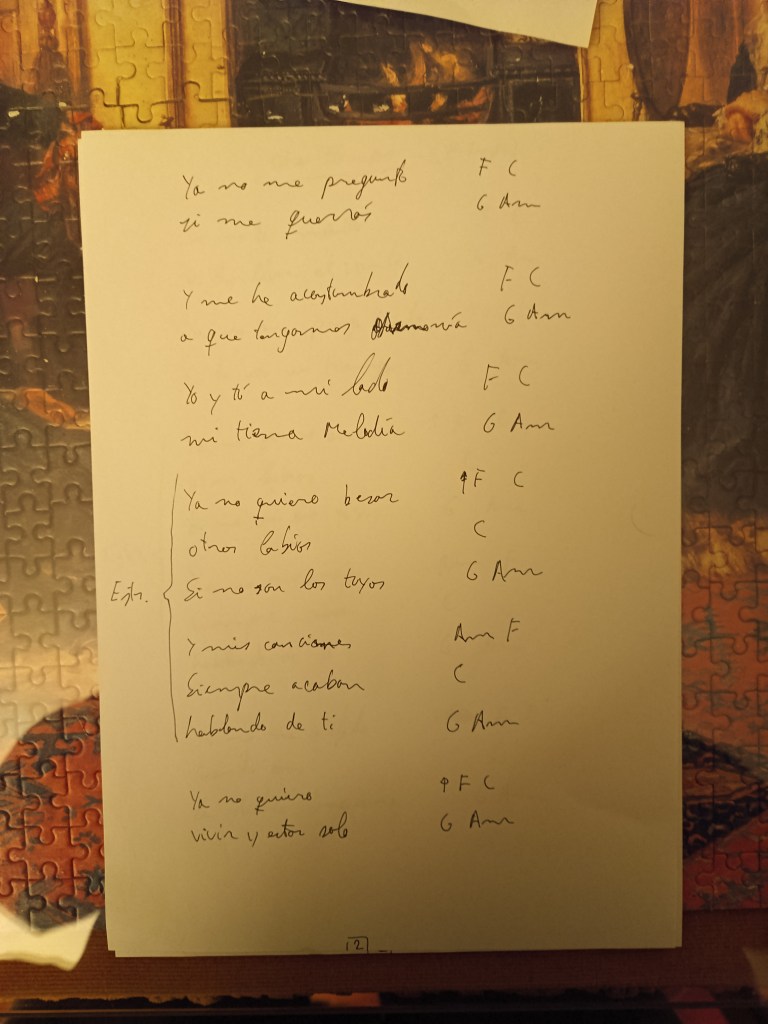 Ya no me pregunto F C
si me querrás G Am
Y me he acostumbrado F C
a que tengamos armonía G Am
Yo y tú a mi lado F C
mi tierna Melodía G Am
Ya no quiero besar ↑F C
otros labios C
Estr. { Si no son los tuyos G Am
Y mis canciones Am F
Siempre acaban C
hablando de ti G Am
Ya no quiero ↑F C
vivir y estar solo G Am
12